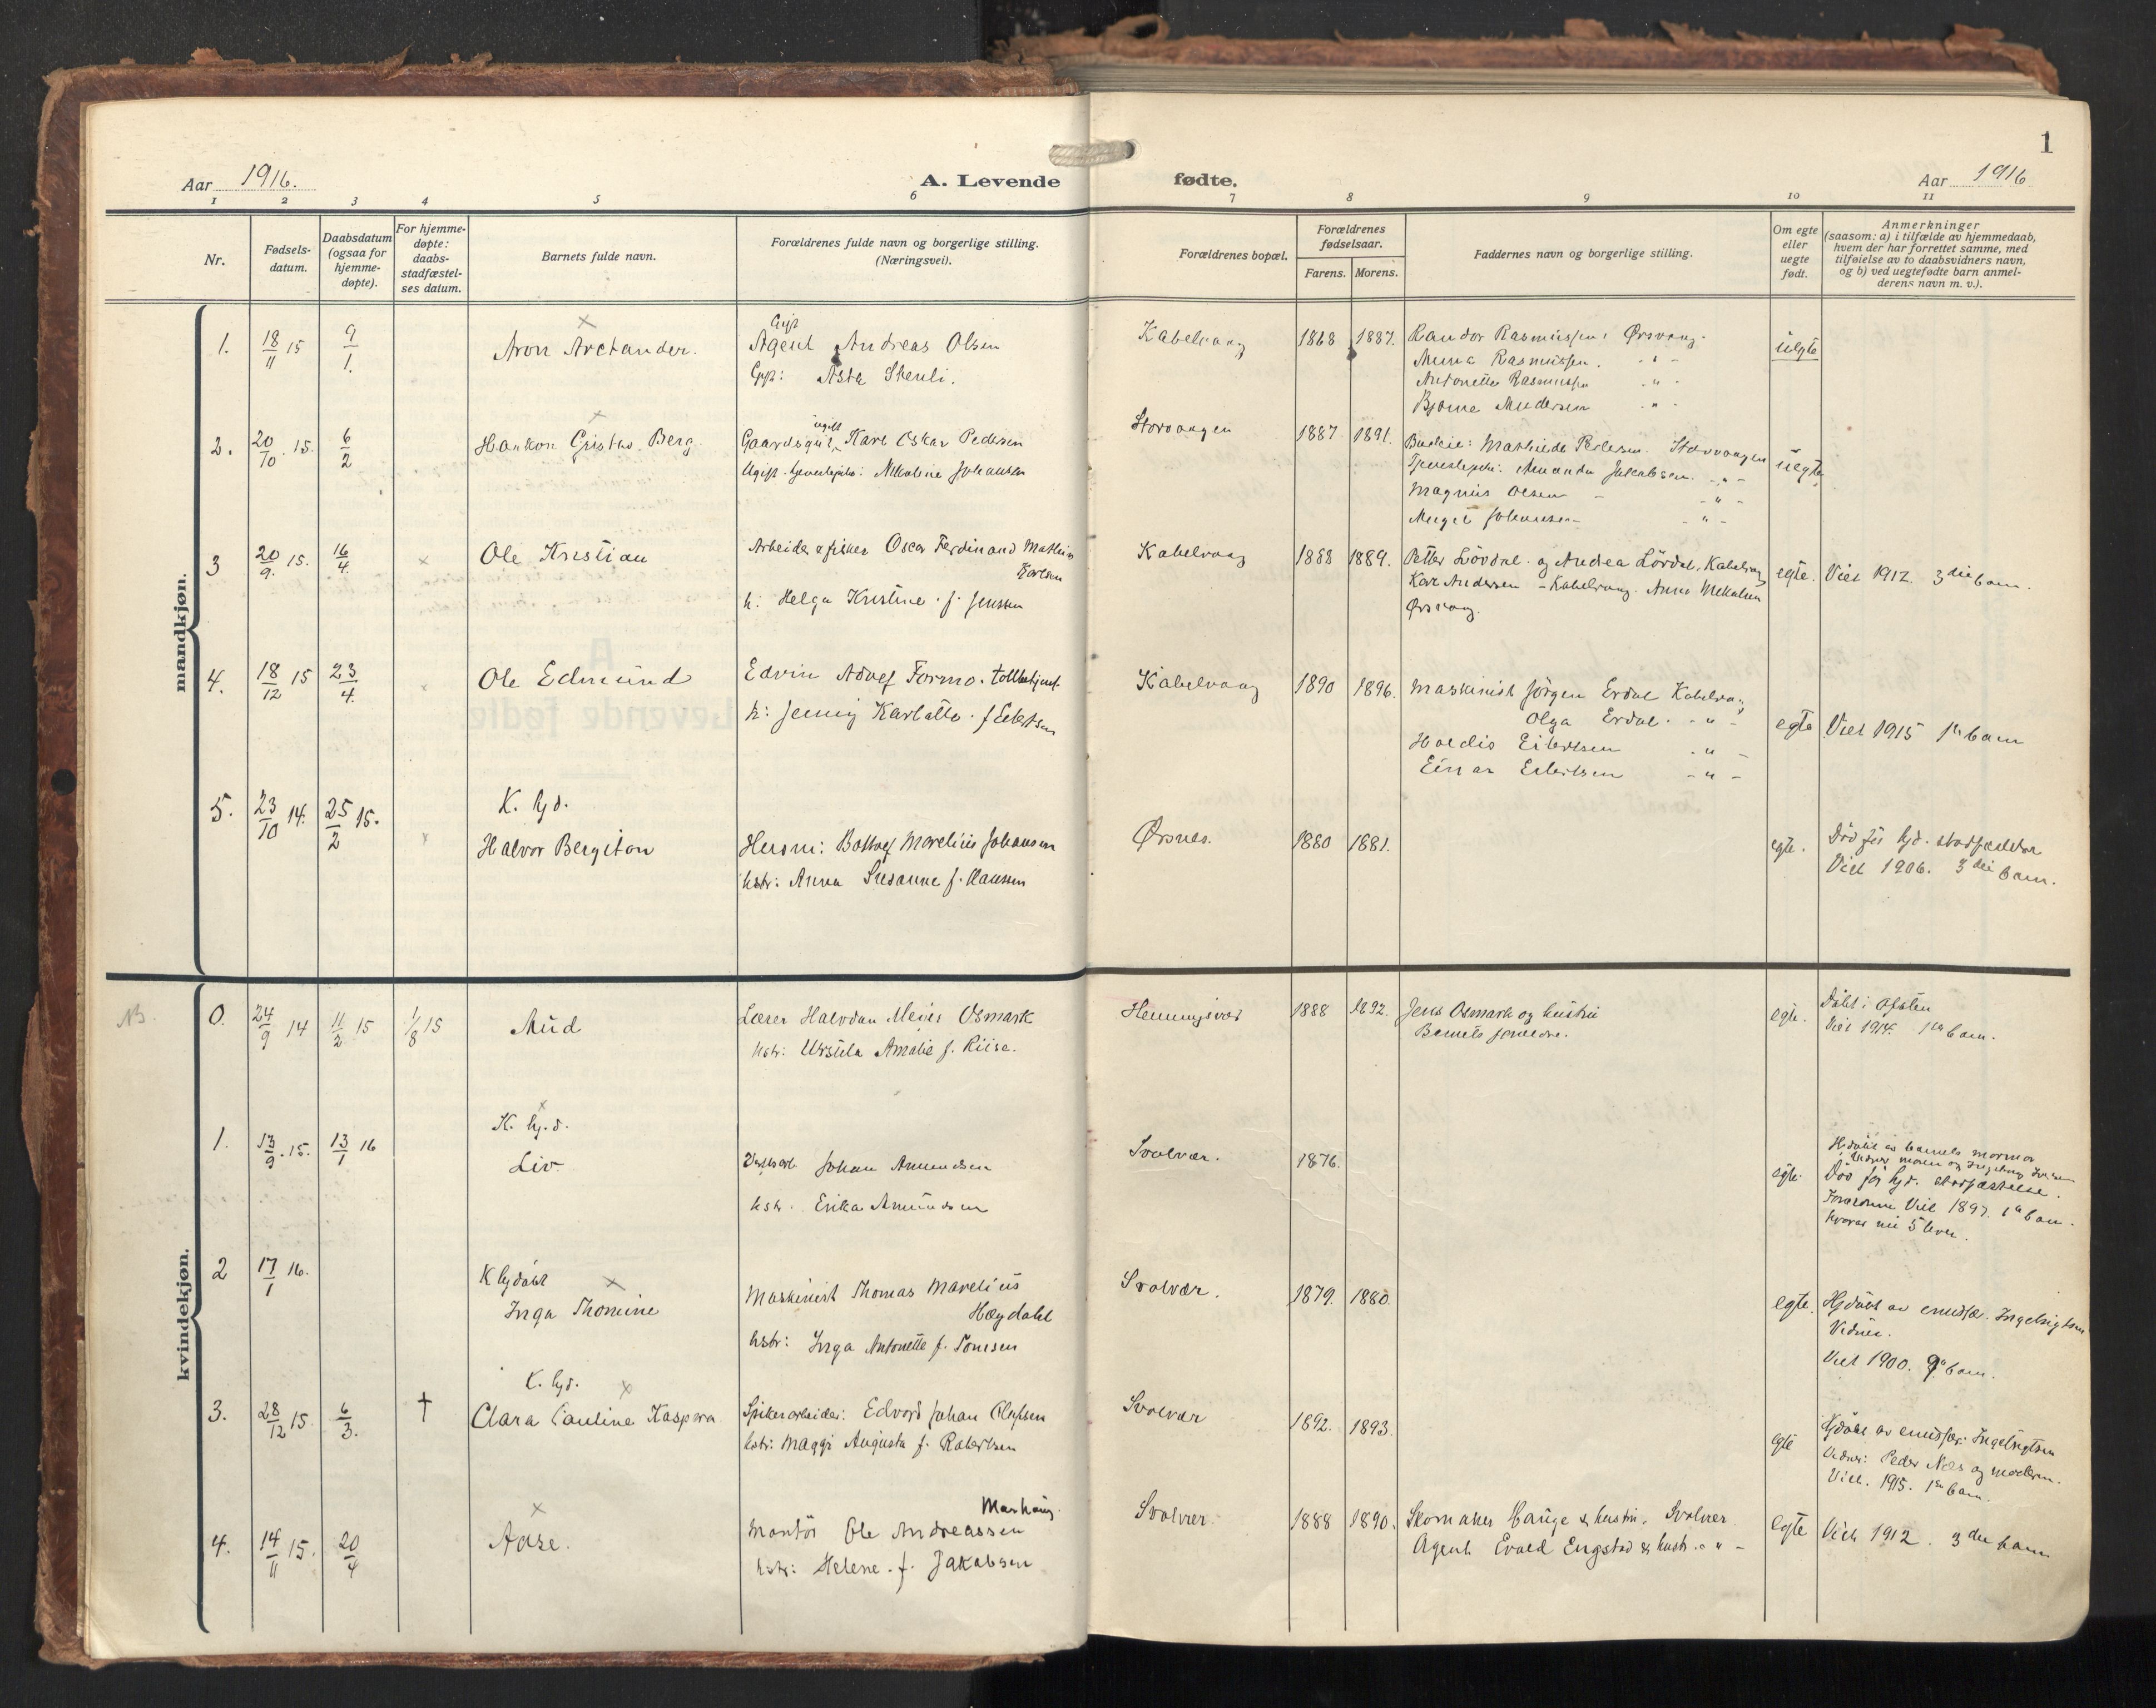 1
Aar 1916. A. Levende fødte. Aar 1916
1 2 3 4 5 6 7 8 9 10 11
Nr.
Fødsels-
datum.
Daabsdatum
(ogsaa for
hjemme-
døpte).
For hjemme-
døpte:
daabs-
stadfæstel-
ses datum.
Barnets fulde navn.
Forældrenes fulde navn og borgerlige stilling.
(Næringsvei).
Forældrenes bopæl.
Forældrenes
fødselsaar.
Farens. Morens.
Faddernes navn og borgerlige stilling.
Om egte
eller
uegte
født.
Anmerkninger
(saasom: a) i tilfælde av hjemmedaab,
hvem der har forrettet samme, med
tilføielse av to daabsvidners navn,
og b) ved uegtefødte barn anmel-
derens navn m. v.).
mandkjøn.
1. 18/11 15 9/1. Aron Arctander.
Gift
Agent Andreas Olsen
Asta
Kabelvaag 1868 1887.
Rasmussen, Ørsvaag.
Anna Rasmussen. - " -
Antonette Rasmussen - " -
Bjarne Andersen - " -
uegte
2. 20/10 15. 6/2 Haakon Berg.
ugift
Karl Oskar Pedersen
Ugift Johansen
Storvaagen 1887 1891.
Budeie: Mathilde Storvaagen
Amanda Jakobsen. - " -
Magnus Olsen - " -
Johansen - " -
uegte
3 20/9. 15. 16/4. × Ole Kristian
Arbeider & fisker Oscar Ferdinand Mathias
Karlsen
h: Helga Kristine f. Jenssen
Kabelvaag 1888 1889.
Petter Lövdal og Andrea Lövdal, Kabelvaag
Karl Andersen - Kabelvaag. Anna Mekalsen
Ørsvaag.
egte. Viet 1912. 3die barn.
4. 18/12 15 23/4. × Ole Edmund
Edvin Adolf Formo. tollbetjent.
h: Jenny f Eilertsen
Kabelvaag 1890 1896.
Maskinist Jörgen Erdal Kabelvaag
Olga Erdal. - " -
Hordis Eilertsen - " -
Einar Eilertsen - " -
egte Viet 1915 1ste barn
5. 23/10 14. 25/2 15. ×
K. hjd.
Halvor Bergiton
Husm: Johansen
hstr: Anna Susanne f. Clausen
Ørsnes. 1880 1881.
egte. Död för hjd. stadfæstelse
Viet 1906. 3die barn.
kvindekjøn.
NB. 0. 24/9 14 11/2 15 1/8 15 Aud
Lærer Halvdan Meyer Osmark
hstr: Ursula Amalie f. Riise.
Henningsvær 1888 1892.
Jens Osmark og hustru
Barnets
egte. Döbt i Ofoten
Viet 1914. 1ste barn.
1. 13/9. 15. 13/1 16
K. hj.d.
Liv
Johan Amundsen
hstr. Erika Amundsen
Svolvær. 1876.
egte. Hjdöbt av barnets mormor
Död för hjd. stadfæstelse.
Viet 1897. barn.
5 lever.
2 17/1 16.
K hjdöbt
Inga Thomine
Maskinist Thomas Marelius
Høgdahl
hstr: Inga Antonette f. Tonesen
Svolvær. 1879. 1880.
egte. Hjdöbt av emisfær. Ingebrigtsen
Vidner.
Viet 1900. 9de barn.
3. 28/12 15. 6/3. †
K. hjd.
Clara Pauline Kaspara
Edvard Johan Olufsen
hstr: Maggi Augusta f. Robertsen
Svolvær 1892. 1893.
egte Hjdöbt av emisfær. Ingebrigtsen
Vidner: Peder Næs og moderen.
Viet. 1915. 1ste barn.
4. 14/11 15. 20/4 Aase.
Montör Ole Andreassen
hstr: Helene f. Jakobsen
Svolvær. 1888 1890.
Skomaker Hauge & hustru. Svolvær
Agent Evald Engstad & hustr. - " -
egte Viet 1912. 3die barn